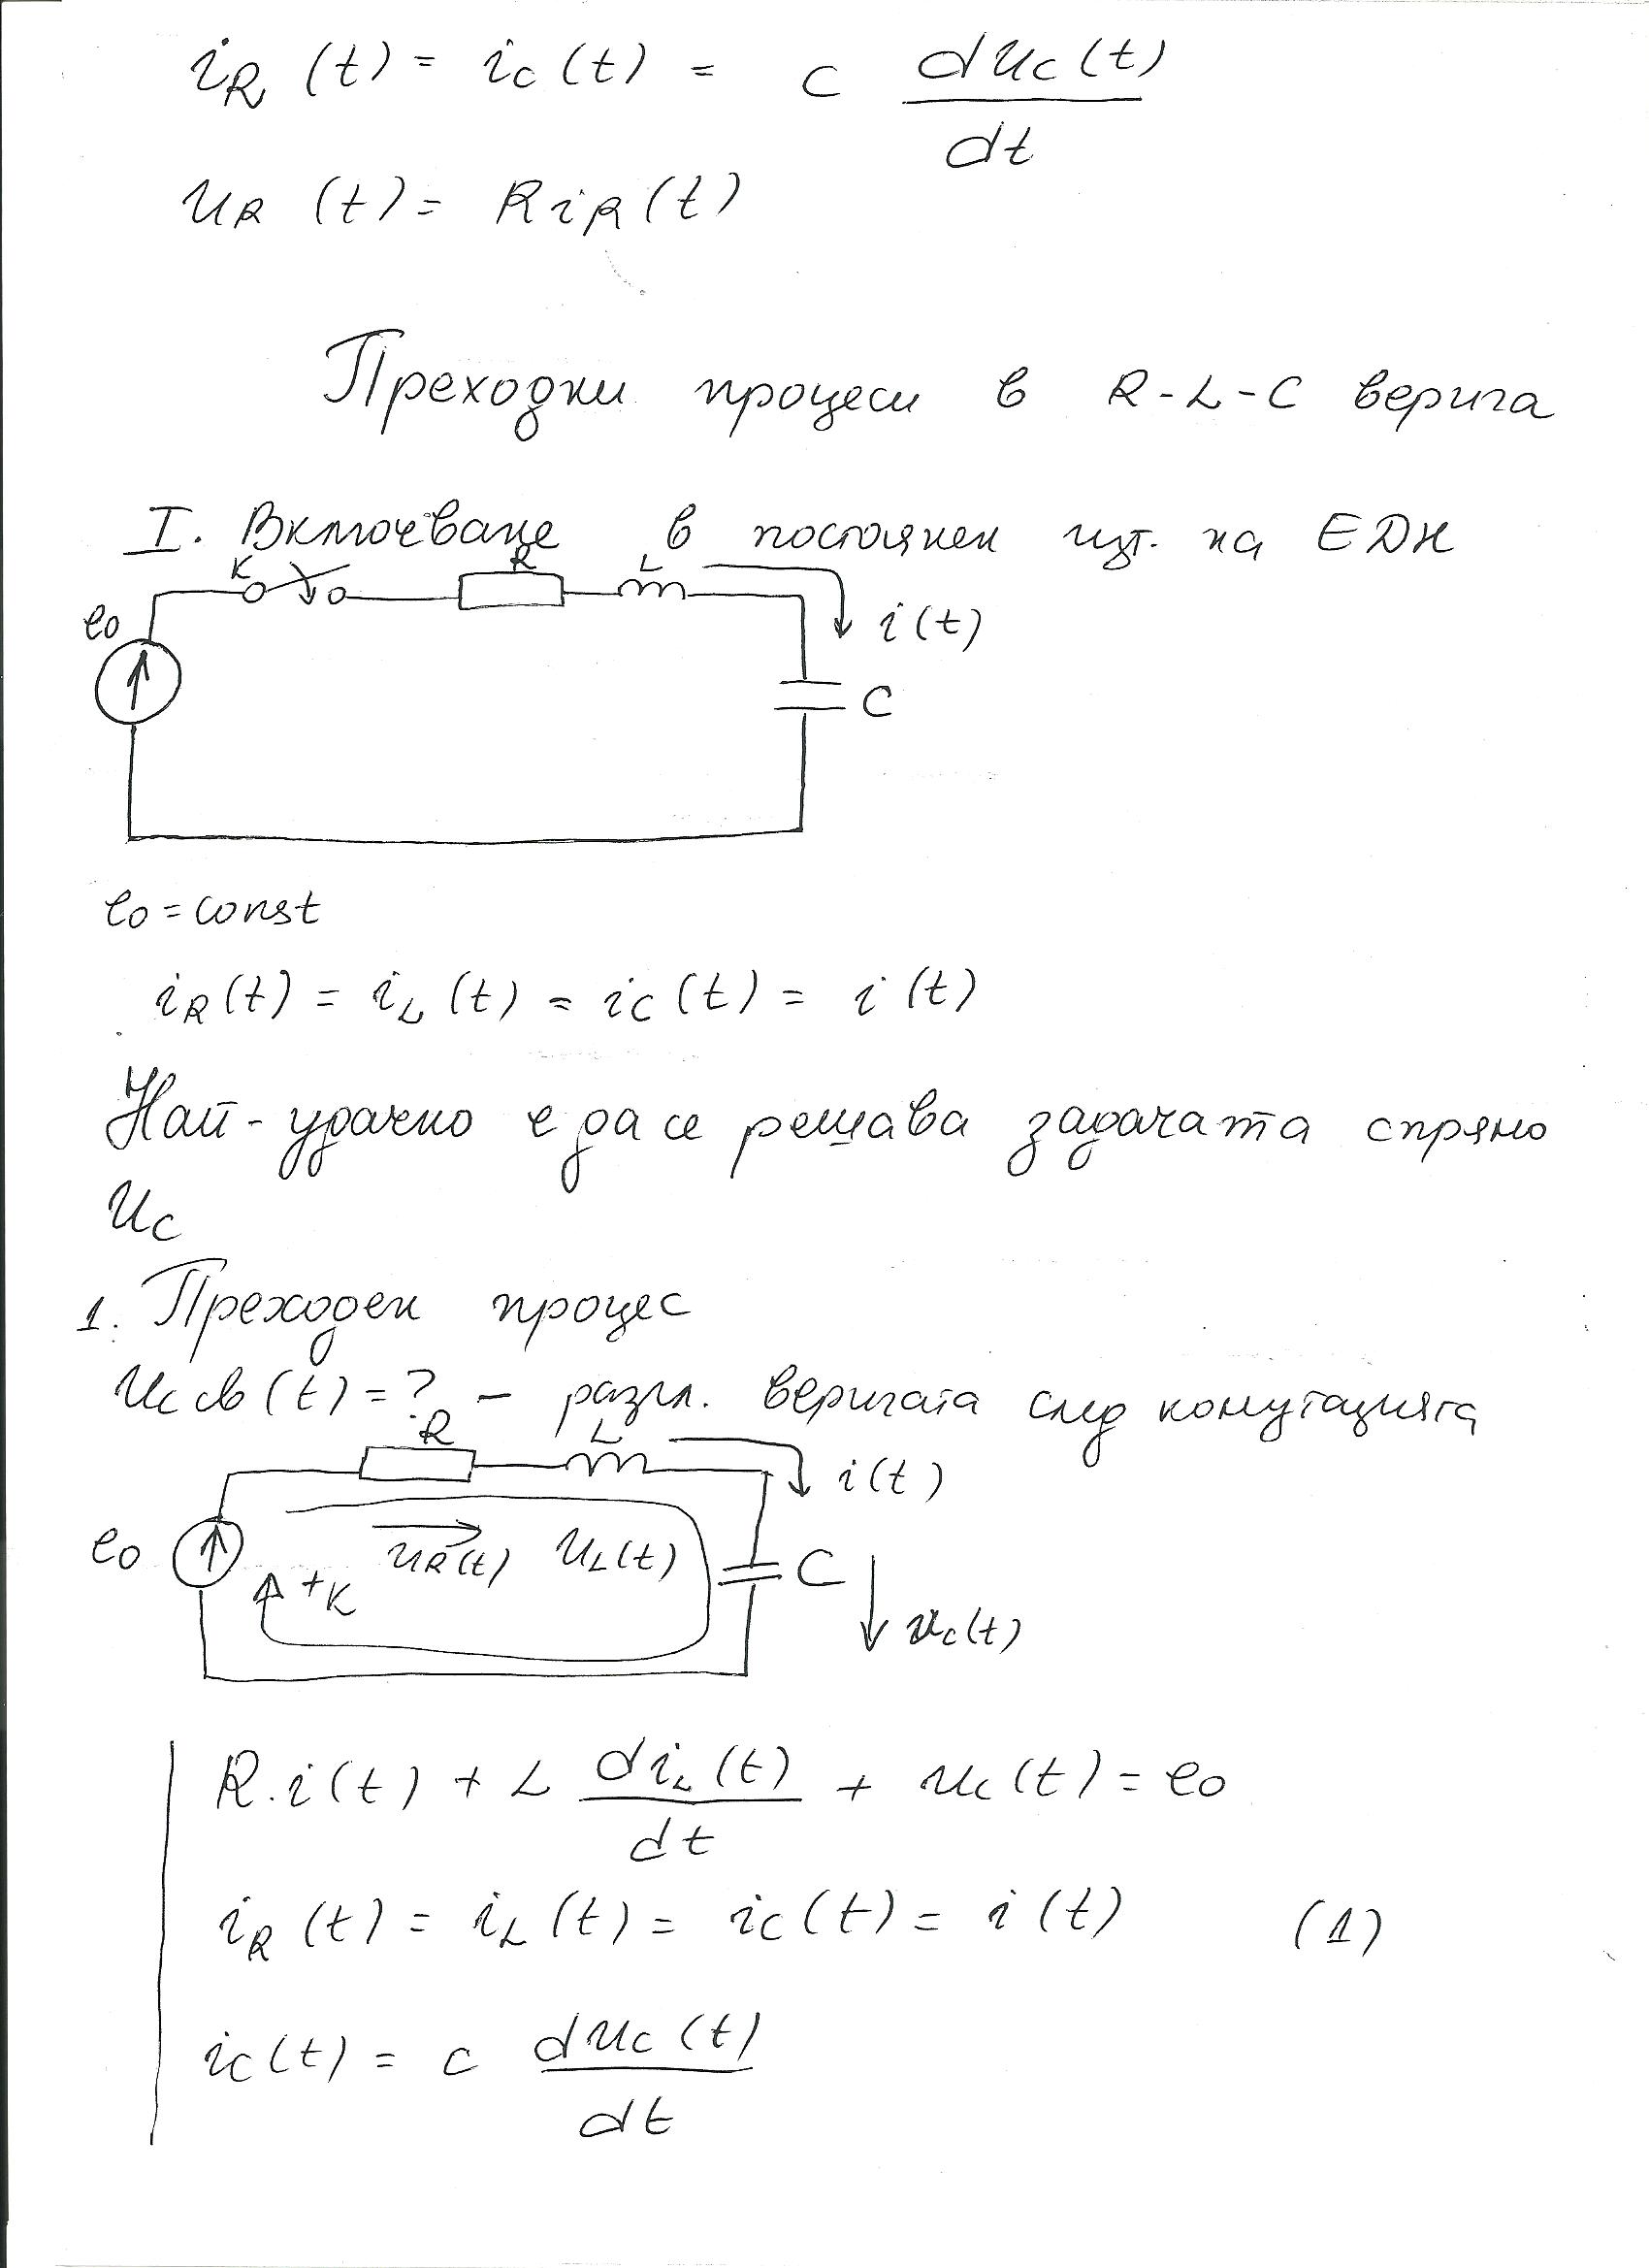 i_R (t) = i_C (t) = C du_C (t) / dt
u_R (t) = R i_R (t)
Преходни процеси в R-L-C верига
I. Включване в постоянен изт. на ЕДН
K R L
e_0
i(t)
C
e_0 = const
i_R (t) = i_L (t) = i_C (t) = i (t)
Най-удачно е да се решава задачата спрямо
u_C
1. Преходен процес
u_C св (t) = ? – разгл. веригата след комутацията
R L
i(t)
e_0 u_R (t) u_L (t) C
+K
u_C (t)
R.i(t) + L di_L (t) / dt + u_C (t) = e_0
i_R (t) = i_L (t) = i_C (t) = i (t) (1)
i_C (t) = C du_C (t) / dt